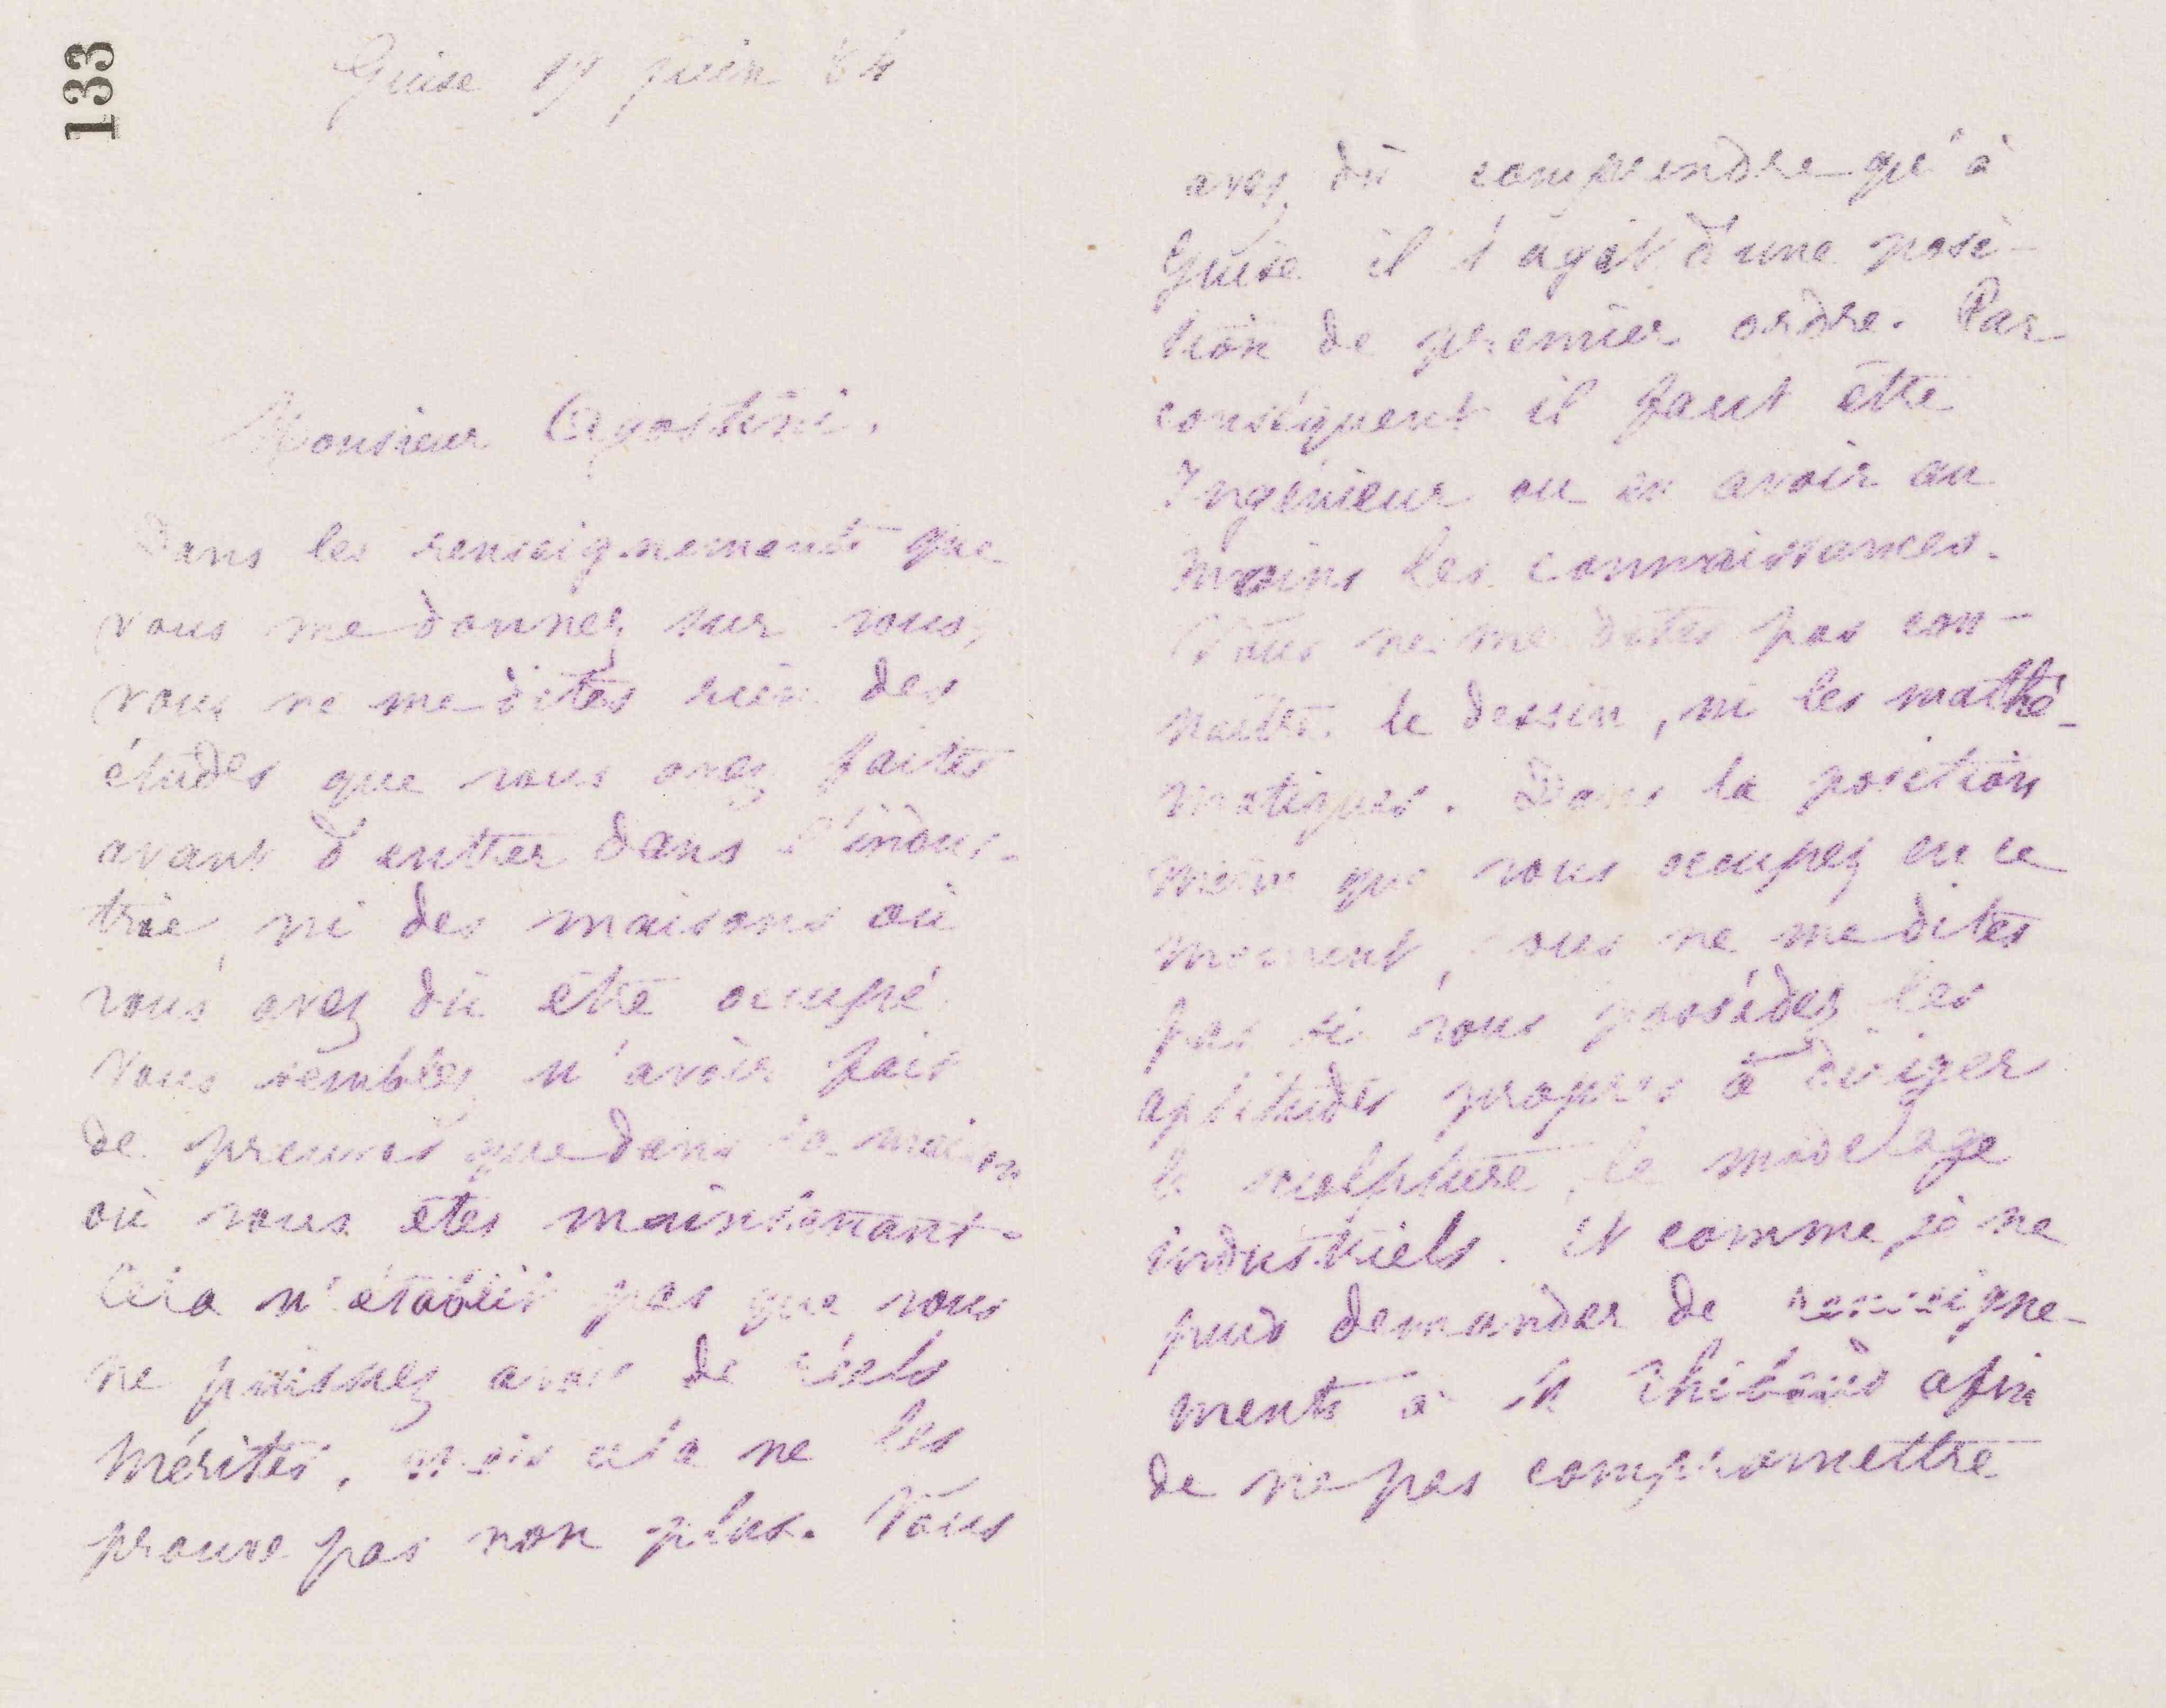 133
Guise 17 juin 84
Monsieur Agostini.
Dans les renseignements que
vous me donnez sur vous,
vous ne me dites rien des
études que vous avez faites
avant d'entrer dans l'indus-
trie, ni des maisons où
vous avez dû être occupé
Vous semblez n'avoir fait
de preuves que dans la maison
où vous êtes maintenant.
Cela n'établit pas que vous
ne puissiez avoir de réels
mérites, mais cela ne les
prouve pas non plus. Vous
avez dû comprendre qu'à
Guise il s'agit d'une posi-
tion de premier ordre. Par
conséquent il faut être
Ingénieur ou en avoir au
moins les connaissances.
Vous ne me dites pas con-
naître le dessin, ni les mathé-
matiques. Dans la position
même que vous occupez en ce
moment, vous ne me dites
pas si vous possédez les
aptitudes propres à diriger
la sculpture, le modelage
industriels. Et comme je ne
puis demander de renseigne-
ments à M afin
de ne pas compromettre